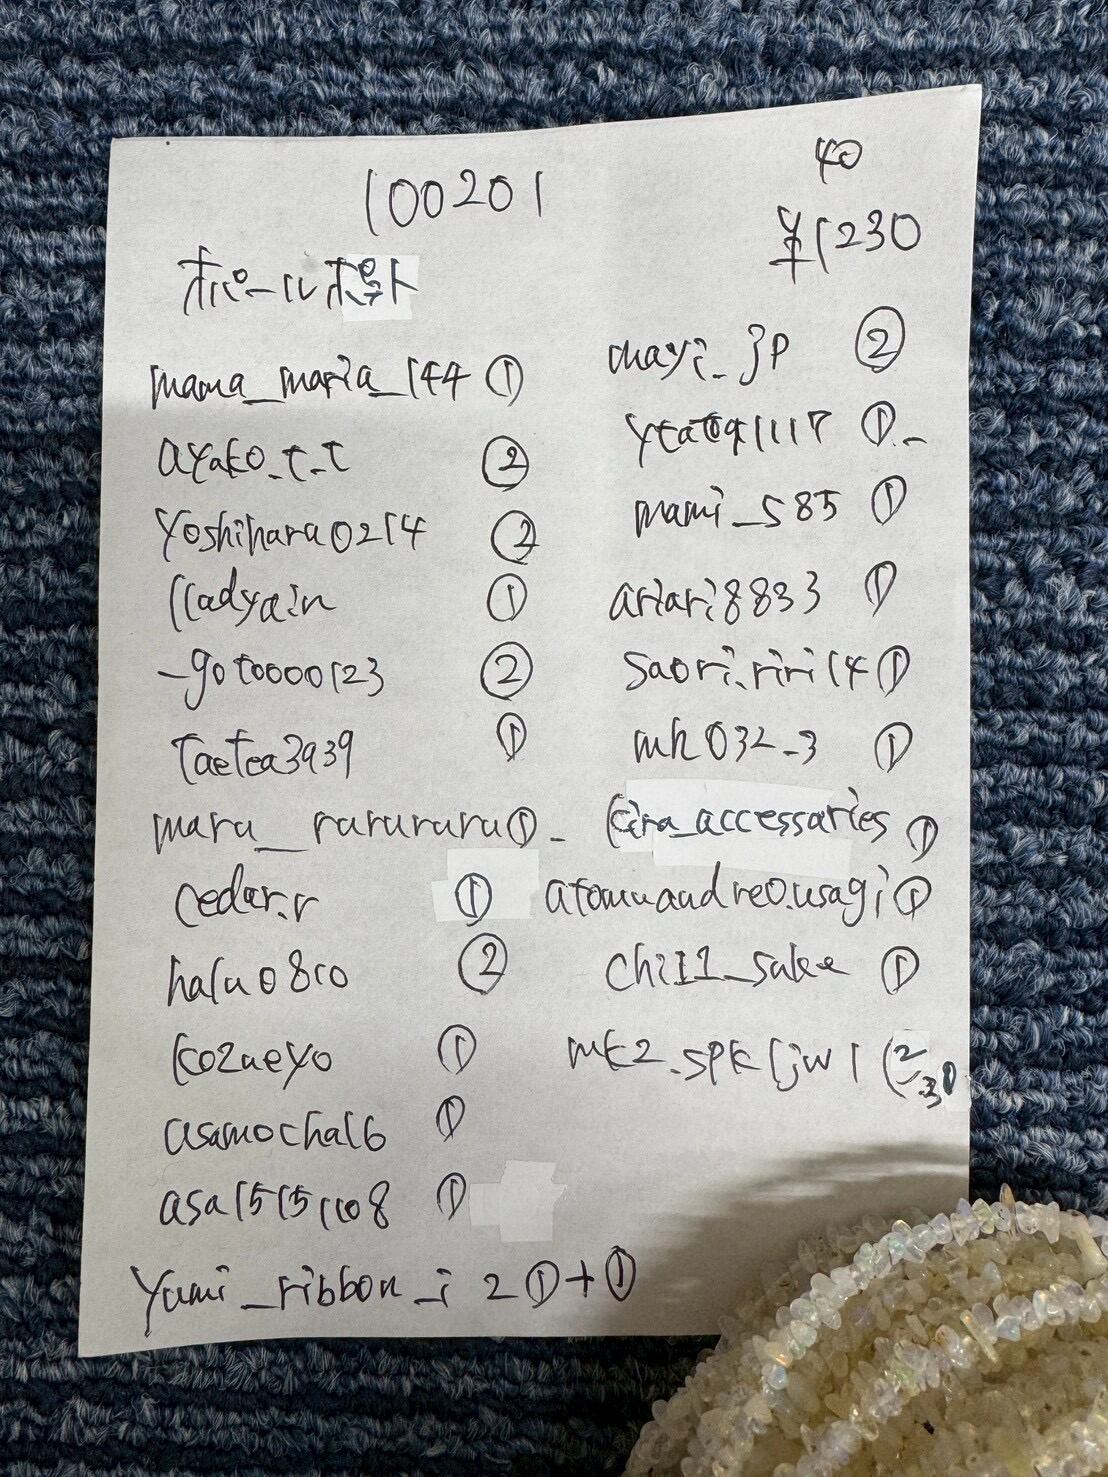 100201
40
¥1230
オパールポスト
mama_maria_144 ①
ayako_t_t ②
yoshihara0214 ②
lladyain ①
_gotoooo123 ②
taetea3939 ①
maru__rurururu①_
cedar.r ①
halu0810 ②
kozueyo ①
asamocha16 ①
asa15151108 ①
yumi_ribbon_i 2①+①
mayi_jp ②
ytatoq1117 ①_
mami_585 ①
ariari8833 ①
saori.riri14①
mh032_3 ①
kira_accessaries ①
atomuandreo.usagi①
chi11_sake ①